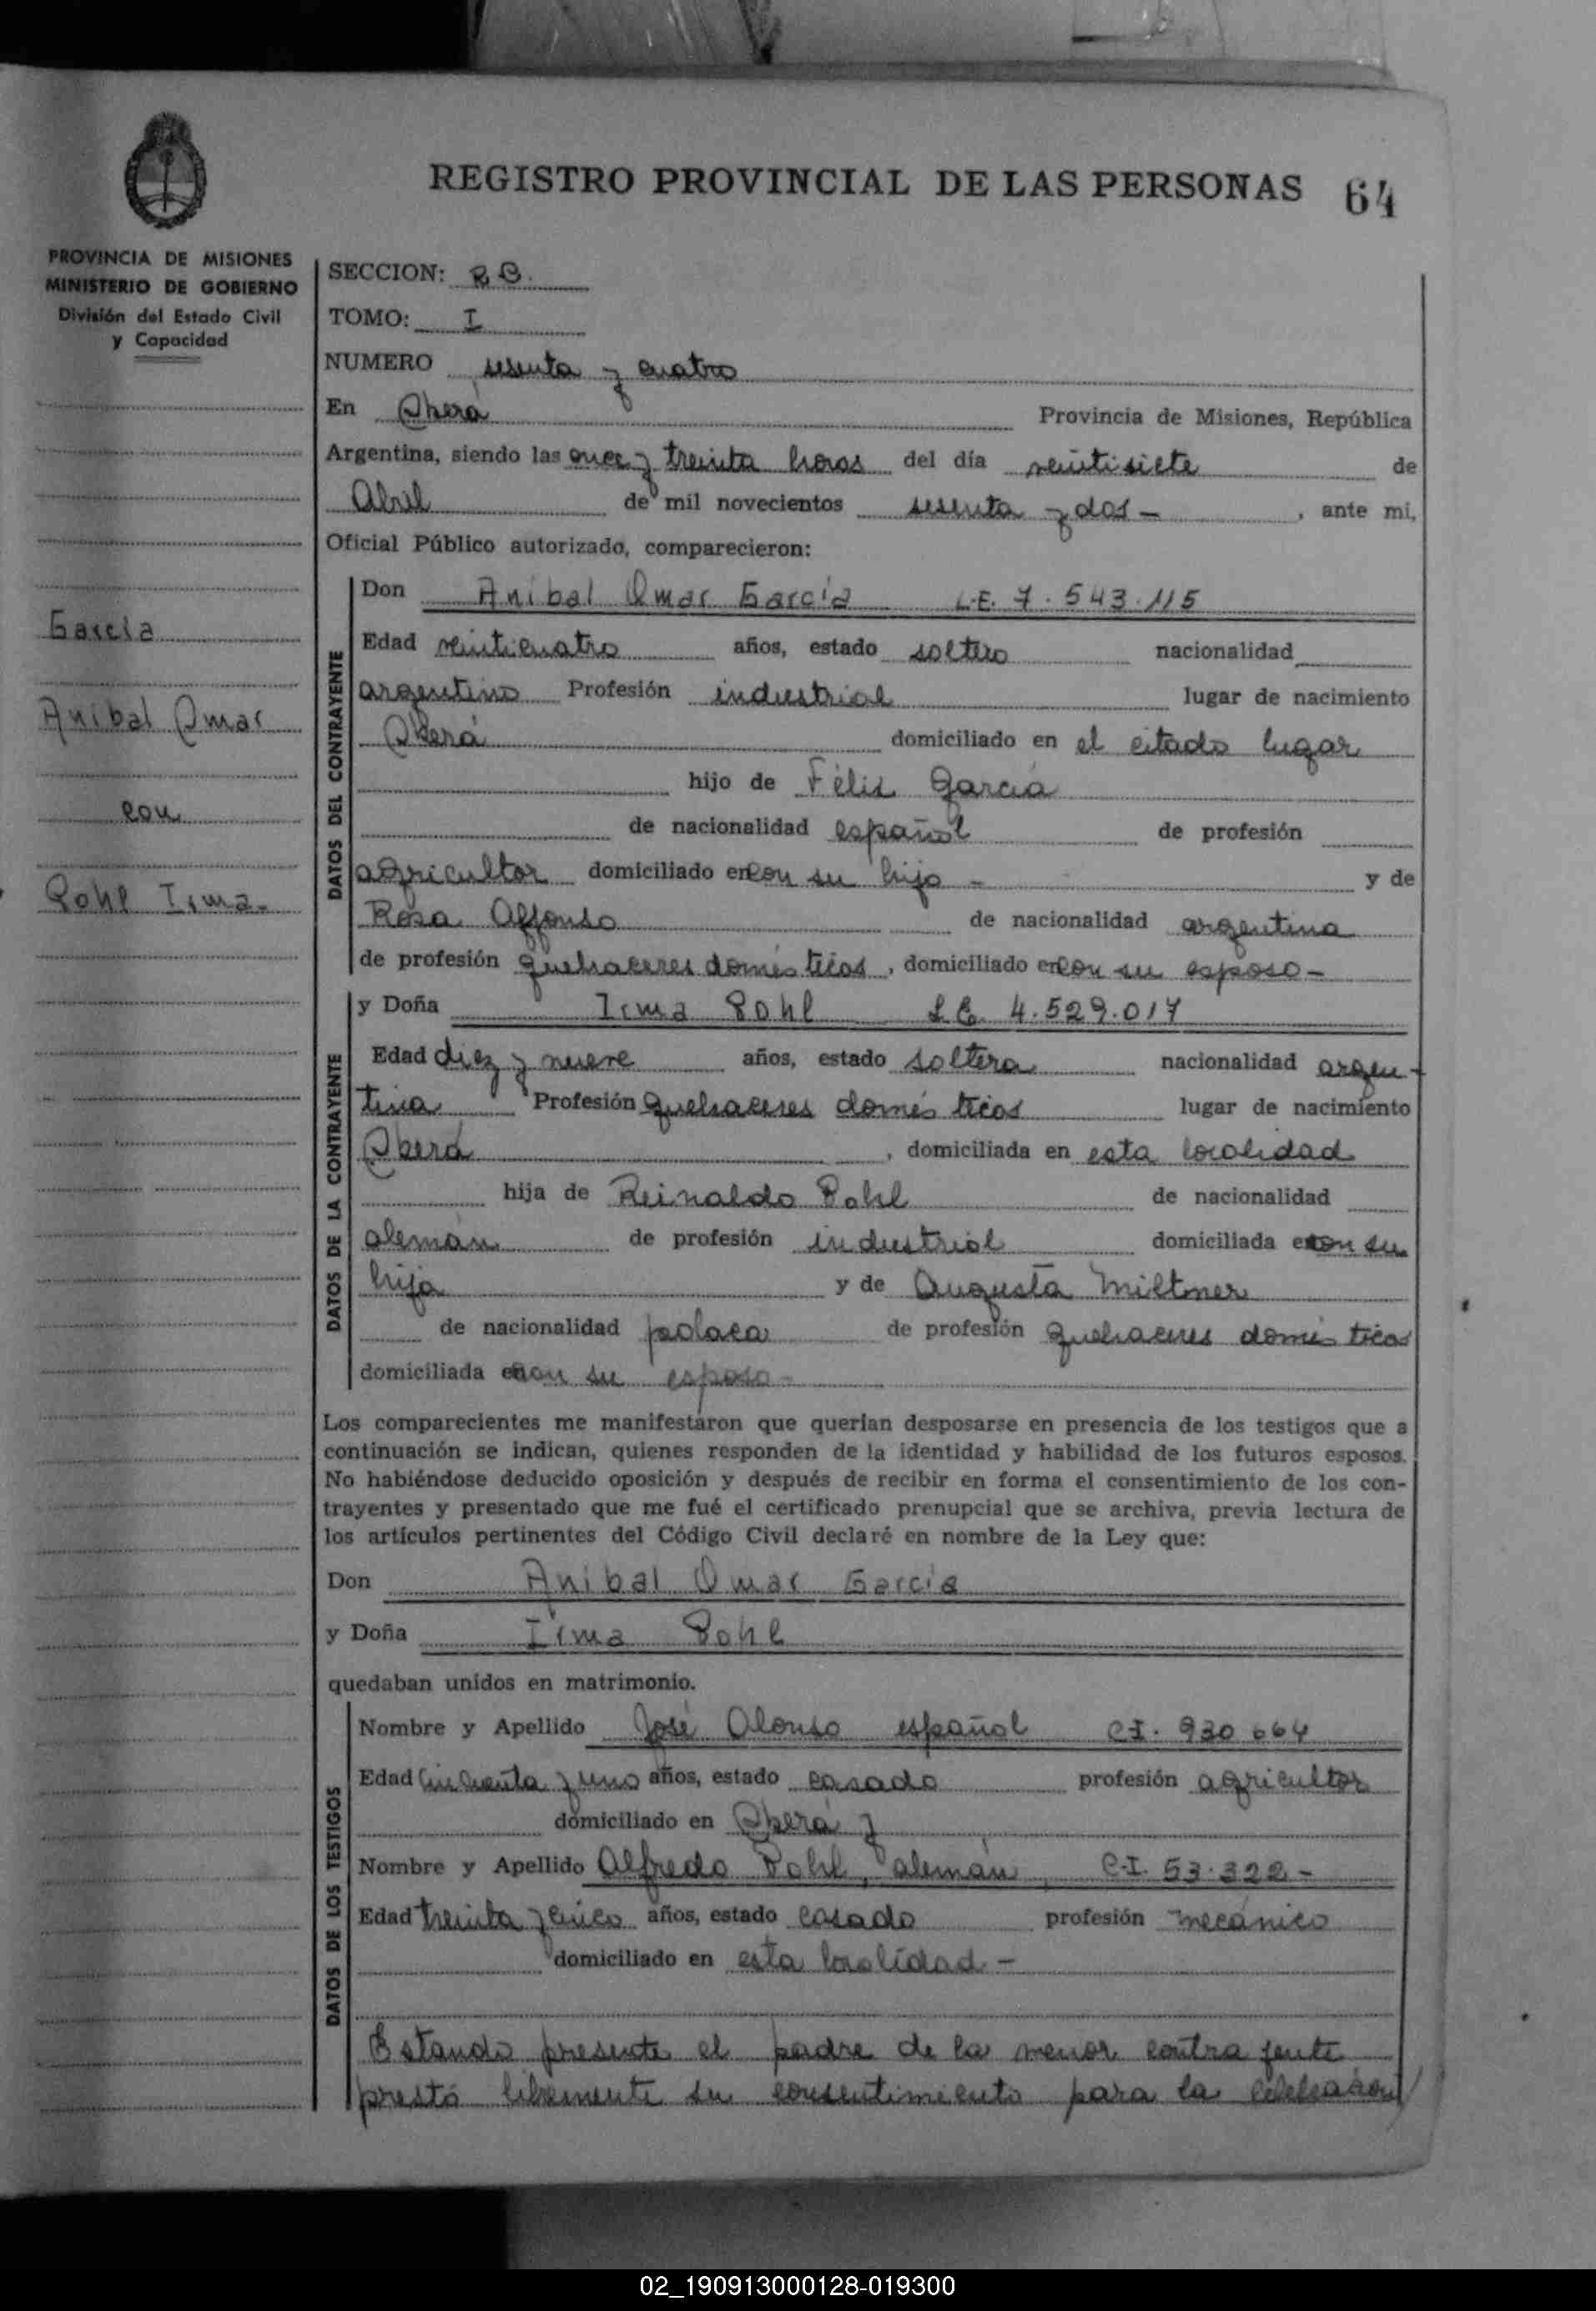 REGISTRO PROVINCIAL DE LAS PERSONAS 64
PROVINCIA DE MISIONES
MINISTERIO DE GOBIERNO
División del Estado Civil
y Capacidad
García
Anibal Omar
con
Pohl Irma.
SECCION: R B.
TOMO: I
NUMERO sesenta y cuatro
En Oberá Provincia de Misiones, República
Argentina, siendo las once y treinta horas del día veintisiete de
Abril de mil novecientos sesenta y dos - , ante mi,
Oficial Público autorizado, comparecieron:
DATOS DEL CONTRAYENTE
Don Anibal Omar García L.E. 7.543.115
Edad veinticuatro años, estado soltero nacionalidad
argentino Profesión industrial lugar de nacimiento
Oberá domiciliado en el citado lugar
hijo de Félix García
de nacionalidad español de profesión
agricultor domiciliado en con su hijo - y de
Rosa Affonso de nacionalidad argentina
de profesión quehaceres domésticos, domiciliado en con su esposo -
DATOS DE LA CONTRAYENTE
y Doña Irma Pohl L C 4.529.017
Edad diez y nueve años, estado soltera nacionalidad argen-
tina Profesión quehaceres domésticos lugar de nacimiento
Oberá, domiciliada en esta localidad
hija de Reinaldo Pohl de nacionalidad
alemán de profesión industrial domiciliada en con su
hija y de Augusta Miltner
de nacionalidad polaca de profesión quehaceres domésticos
domiciliada en con su esposo -
Los comparecientes me manifestaron que querían desposarse en presencia de los testigos que a
continuación se indican, quienes responden de la identidad y habilidad de los futuros esposos.
No habiéndose deducido oposición y después de recibir en forma el consentimiento de los con-
trayentes y presentado que me fué el certificado prenupcial que se archiva, previa lectura de
los artículos pertinentes del Código Civil declaré en nombre de la Ley que:
Don Anibal Omar García
y Doña Irma Pohl
quedaban unidos en matrimonio.
DATOS DE LOS TESTIGOS
Nombre y Apellido José Alonso español C.I. 930 664
Edad cincuenta y uno años, estado casado profesión agricultor
domiciliado en Oberá y
Nombre y Apellido Alfredo Pohl, alemán C.I. 53.322 -
Edad treinta y cinco años, estado casado profesión mecánico
domiciliado en esta localidad -
Estando presente el padre de la menor contrayente
prestó libremente su consentimiento para la celebración
02_190913000128-019300